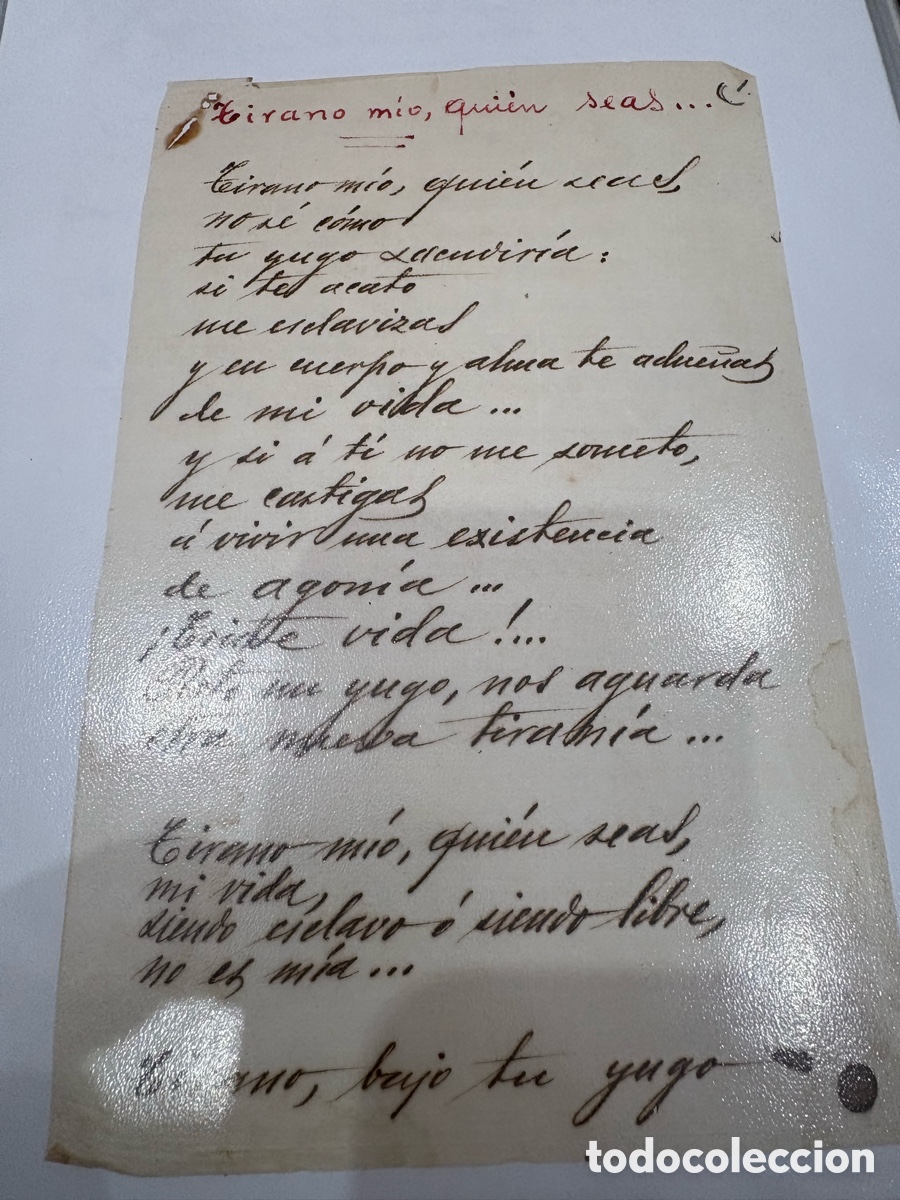 Tirano mío, quién seas...
Tirano mío, quién seas,
no sé cómo
tu yugo sacudiría:
si te acato
me esclavizas
y en cuerpo y alma te adueñas
de mi vida...
y si á tí no me someto,
me castigas
á vivir una existencia
de agonía...
¡Triste vida!...
Roto un yugo, nos aguarda
otra nueva tiranía...
Tirano mío, quién seas,
mi vida,
siendo esclavo ó siendo libre,
no es mía...
Tirano, bajo tu yugo
todocoleccion